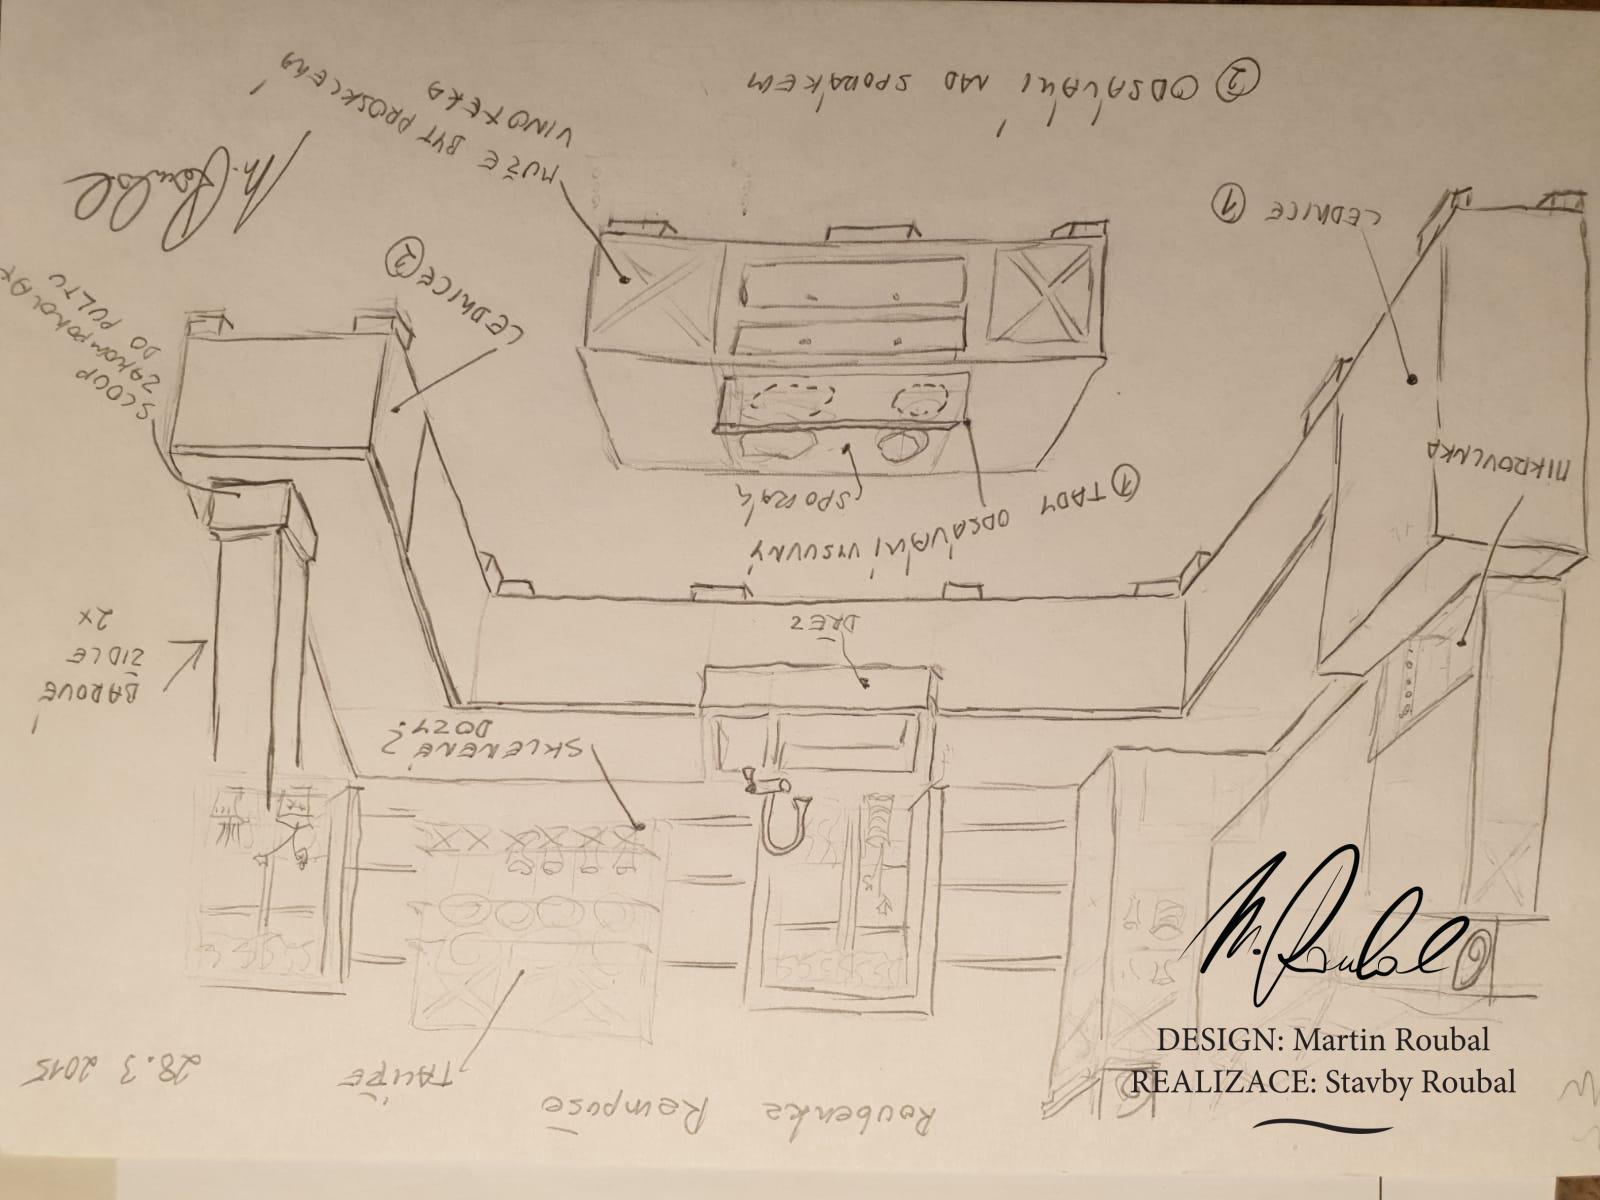 Roubenka Rempuše
28.3 2015
TALÍŘE
SKLENENÉ
DOZY?
BAROVÉ
ŽIDLE
2x
DŘEZ
MIKROVLNKA
① TADY ODSÁVÁNÍ VÝSUVNÝ
SPORÁK
SLOUP
ZAKOMPONOVAT
DO PULTU
LEDNICE ②
LEDNICE ①
MUŽE BYT PROSKLENÁ
VINOTEKA
② ODSÁVÁNÍ NAD SPORÁKEM
M. Roubal
M. Roubal
DESIGN: Martin Roubal
REALIZACE: Stavby Roubal